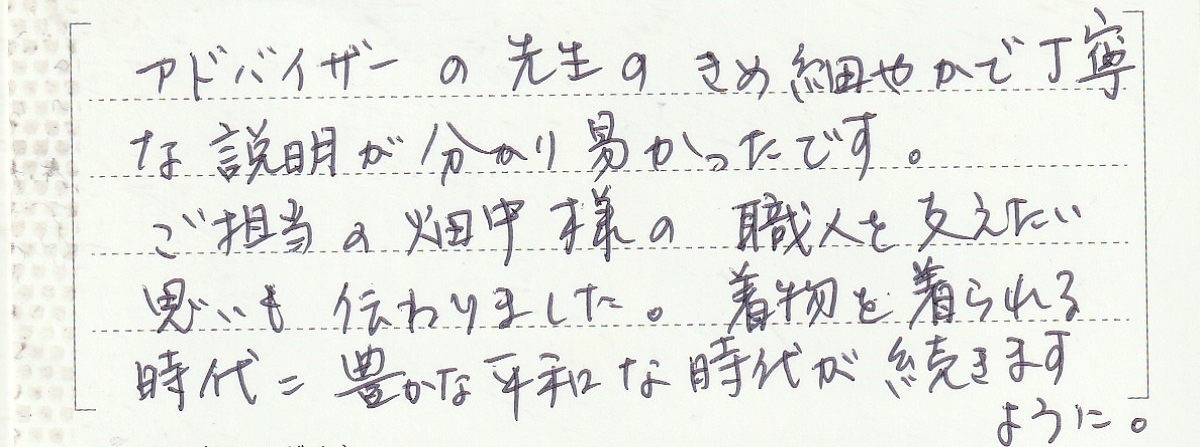 アドバイザーの先生のきめ細やかで丁寧
な説明が分かり易かったです。
ご担当の畑中様の職人を支えたい
思いも伝わりました。着物を着られる
時代=豊かな平和な時代が続きます
ように。